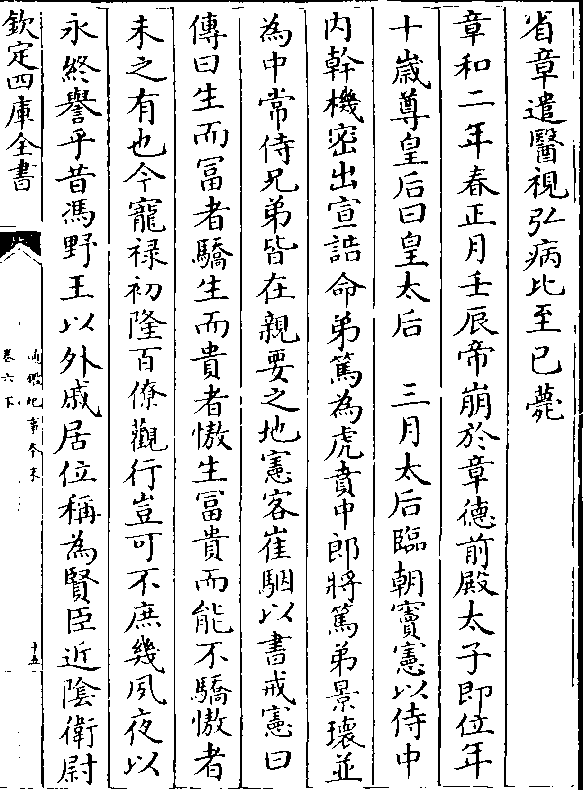 省章遣醫視弘病比至已薨
章和二年春正月壬辰帝崩於章德前殿太子即位年
十歲尊皇后曰皇太后　三月太后臨朝竇憲以侍中
内幹機密出宣誥命弟篤為虎賁中郎將篤弟景瓌並
為中常侍兄弟皆在親要之地憲客崔駰以書戒憲曰
傳曰生而富者驕生而貴者慠生富貴而能不驕慠者
未之有也今寵禄初隆百僚觀行豈可不庶幾夙夜以
永終譽乎昔馮野王以外戚居位稱為賢臣近隂衛尉
欽定四庫全書
通鑑紀事本末
卷六下
十五